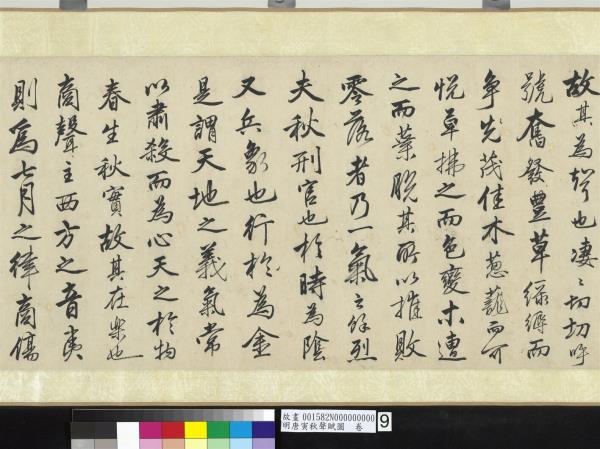 故其為聲也淒〻切切呼
號奮發豐草綠縟而
争先茂佳木葱蘢而可
悅草拂之而色變木遭
之而葉脫其所以摧敗
零落者乃一氣之餘烈
夫秋刑官也於時為陰
又兵象也行於為金
是謂天地之義氣常
以肅殺而為心天之於物
春生秋實故其在樂也
商聲主西方之音夷
則爲七月之律商傷
故畫 001582N000000000
明唐寅秋聲賦圖 卷
9